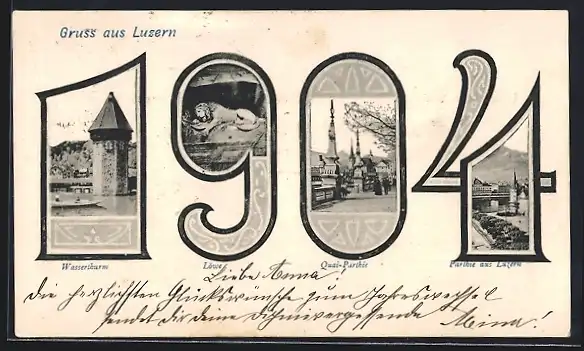 Gruss aus Luzern
1904
Wasserthurm
Löwe
Quai-Parthie
Parthie aus Luzern
Liebe Anna!
Die herzlichsten Glückswünsche zum Jahreswechsel
sendet dir deine Dichnievergessende Mina!